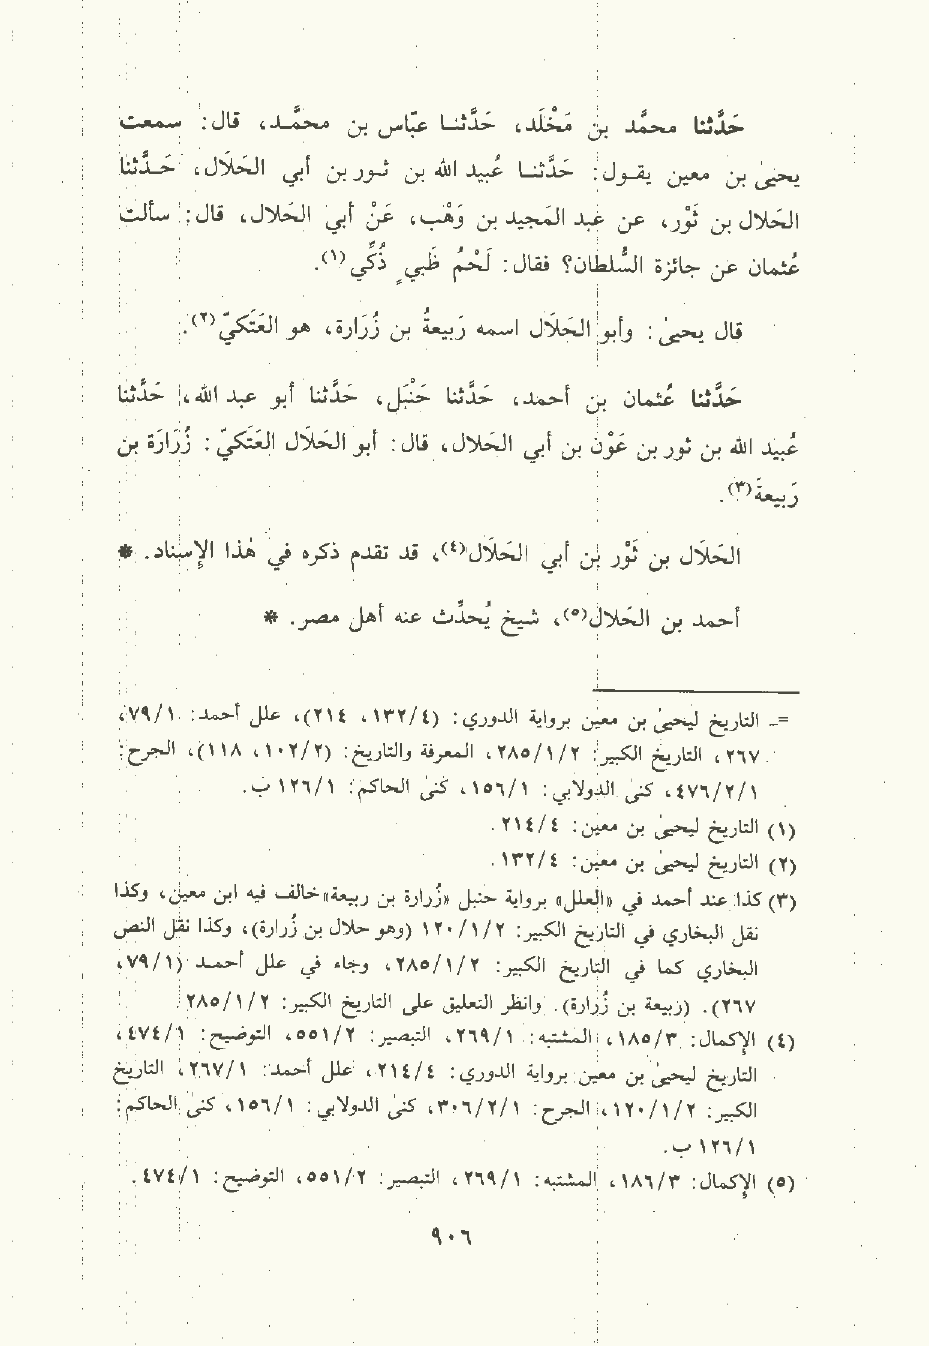 حَدَّثنا محمَّد بن مَخْلَد، حَدَّثنا عبَّاس بن محمَّد، قال: سمعت
يحيىٰ بن معين يقول: حَدَّثنا عُبيد الله بن ثور بن أبي الحَلَال، حَدَّثنا
الحَلال بن ثَوْر، عن عبد المَجيد بن وَهْب، عَنْ أبي الحَلال، قال: سألت
عُثمان عن جائزة السُّلطان؟ فقال: لَحْمُ ظَبيٍ ذُكِّي(١).
قال يحيىٰ: وأبو الحَلَال اسمه رَبيعةُ بن زُرَارة، هو العَتَكيّ(٢).
حَدَّثنا عُثمان بن أحمد، حَدَّثنا حَنْبَل، حَدَّثنا أبو عبد الله، حَدَّثنا
عُبيد الله بن ثور بن عَوْن بن أبي الحَلال، قال: أبو الحَلَال العَتَكيّ: زُرَارَة بن
رَبيعةَ(٣).
الحَلَال بن ثَوْر بن أبي الحَلَال(٤)، قد تقدم ذكره في هٰذا الإِسناد. *
أحمد بن الحَلال(٥)، شيخ يُحدِّث عنه أهل مصر. *
=ـ التاريخ ليحيىٰ بن معين برواية الدوري: (١٣٢/٤، ٢١٤)، علل أحمد: ٧٩/١،
٢٦٧، التاريخ الكبير: ٢٨٥/١/٢، المعرفة والتاريخ: (١٠٢/٢، ١١٨)، الجرح:
٤٧٦/٢/١، كنىٰ الدولابي: ١٥٦/١، كنىٰ الحاكم: ١٢٦/١ ب.
(١) التاريخ ليحيىٰ بن معين: ٢١٤/٤.
(٢) التاريخ ليحيىٰ بن معين: ١٣٢/٤.
(٣) كذا عند أحمد في «العلل» برواية حنبل «زُرارة بن ربيعة» خالف فيه ابن معين، وكذا
نقل البخاري في التاريخ الكبير: ١٢٠/١/٢ (وهو حلال بن زُرارة)، وكذا نقل النص
البخاري كما في التاريخ الكبير: ٢٨٥/١/٢، وجاء في علل أحمد (٧٩/١،
٢٦٧). (ربيعة بن زُرارة). وانظر التعليق على التاريخ الكبير: ٢٨٥/١/٢.
(٤) الإكمال: ١٨٥/٣، المشتبه: ٢٦٩/١، التبصير: ٥٥١/٢، التوضيح: ٤٧٤/١،
التاريخ ليحيىٰ بن معين برواية الدوري: ٢١٤/٤، علل أحمد: ٢٦٧/١، التاريخ
الكبير: ١٢٠/١/٢، الجرح: ٣٠٦/٢/١، كنىٰ الدولابي: ١٥٦/١، كنىٰ الحاكم:
١٢٦/١ ب.
(٥) الإكمال: ١٨٦/٣، المشتبه: ٢٦٩/١، التبصير: ٥٥١/٢، التوضيح: ٤٧٤/١.
٩٠٦